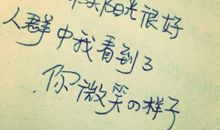 阳光很好
人群中我看到了
你微笑の样子